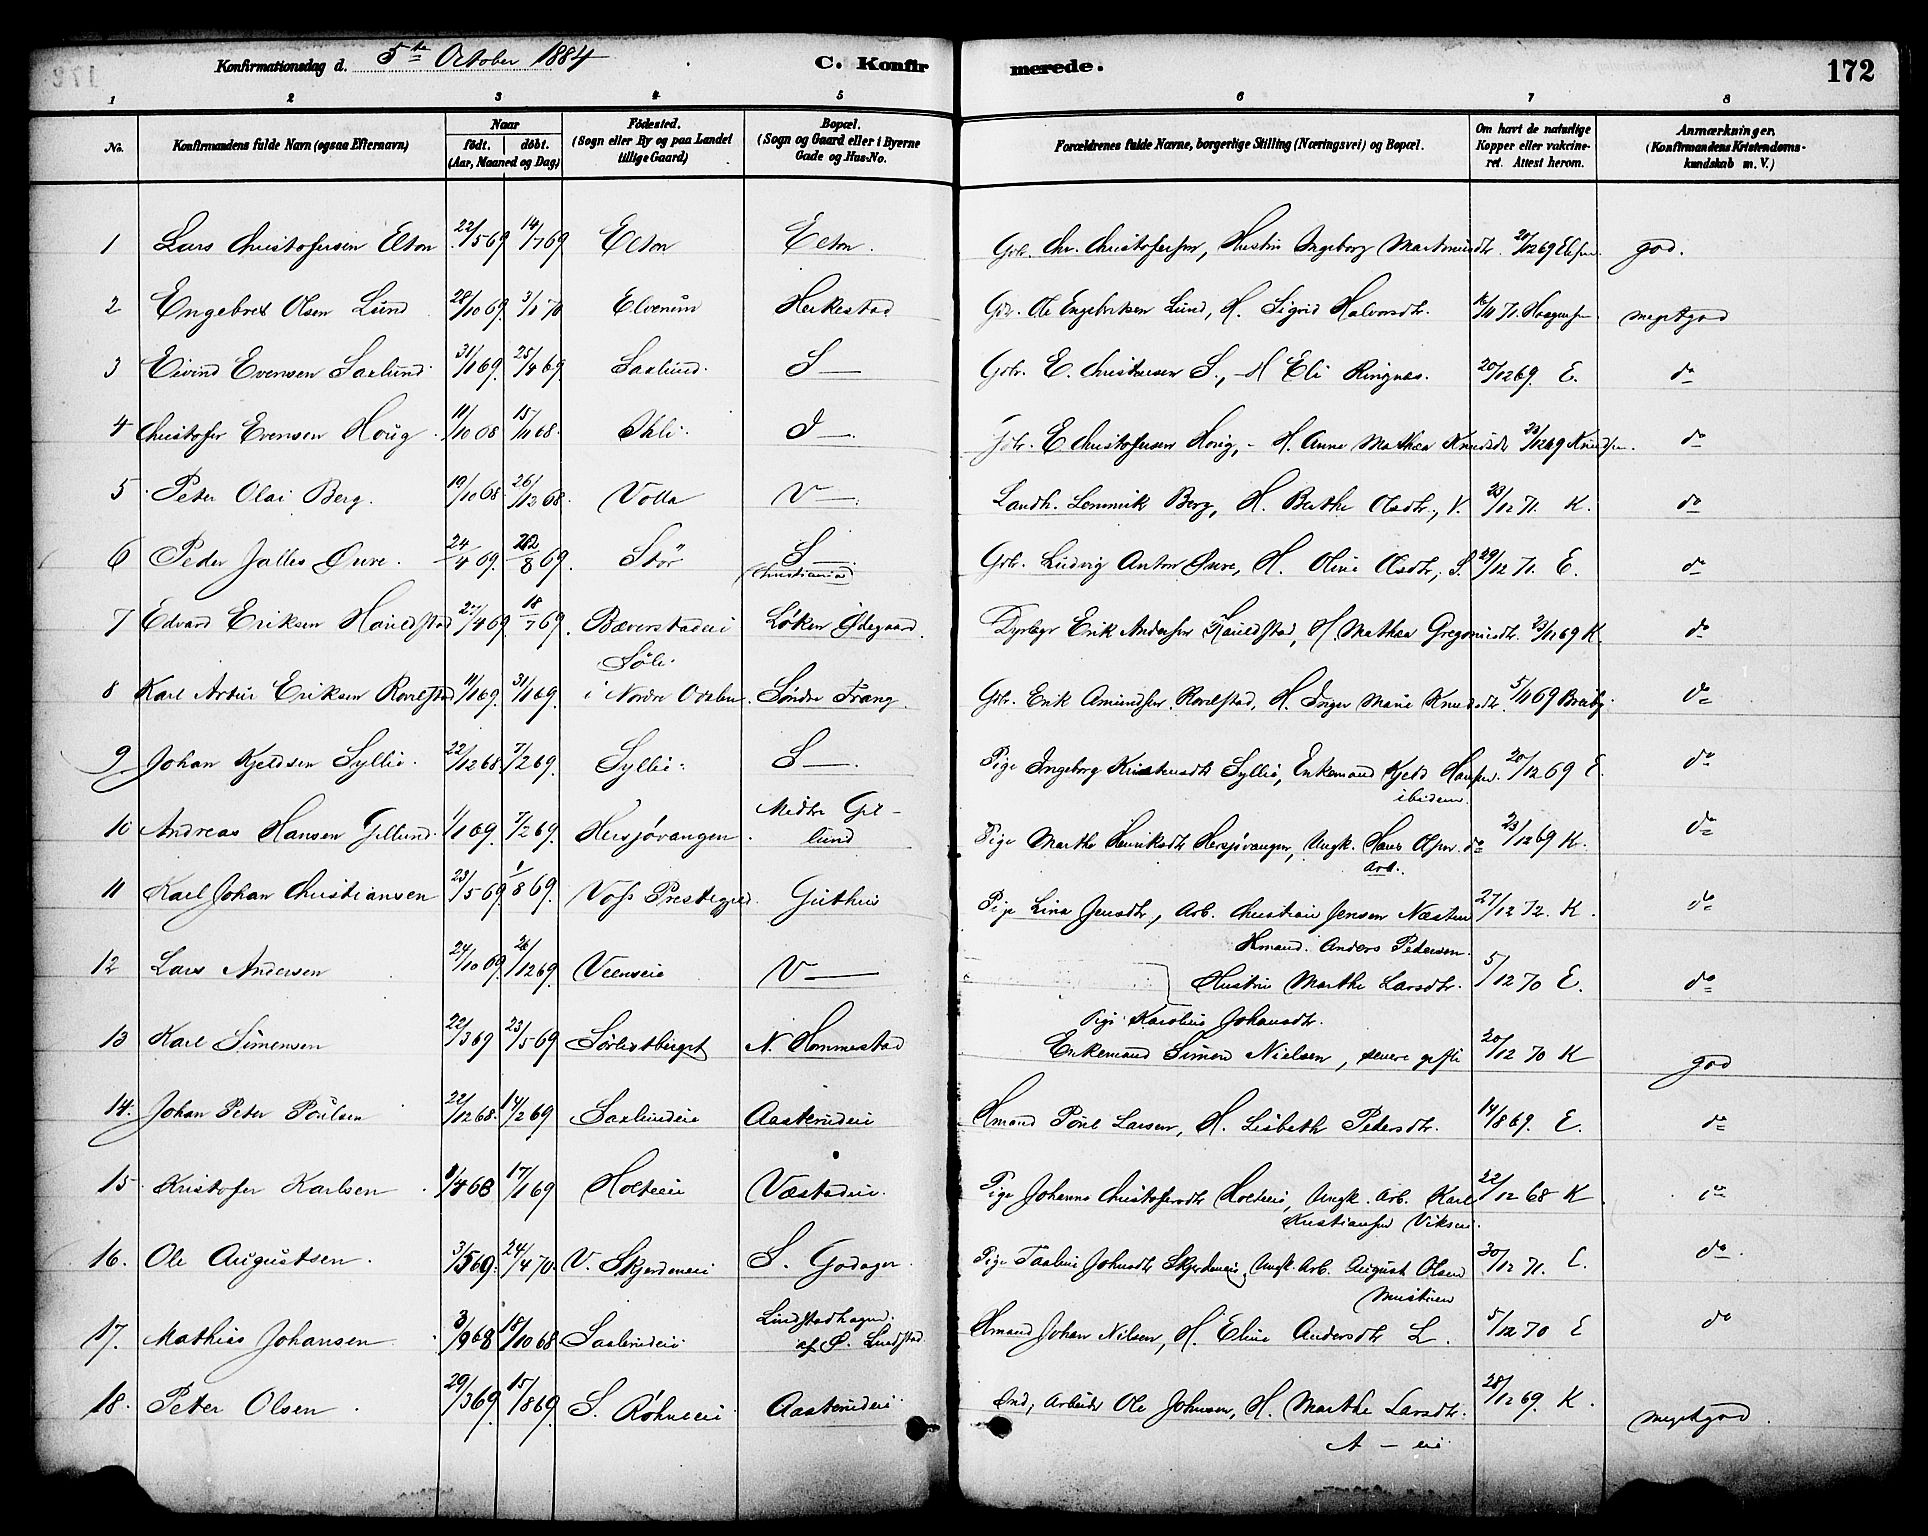 Konfirmationsdag d. 5te October 1884
C. Konfirmerede.
172
1 2 3 4 5 6 7 8
No.
Konfirmandens fulde Navn (ogsaa Efternavn)
Naar
født. døbt.
(Aar, Maaned og Dag)
Fødested.
(Sogn eller By og paa Landet
tillige Gaard)
Bopæl.
(Sogn og Gaard eller i Byerne
Gade og Hus-No.
Forældrenes fulde Navne, borgerlige Stilling (Næringsvei) og Bopæl.
Om havt de naturlige
Kopper eller vakcine-
ret. Attest herom.
Anmærkninger.
(Konfirmandens Kristendoms-
kundskab m. V.)
1 Lars Christofersen Elton 22/5 69 14/7 69 Elton Elton. Gbr. Chr. Christofersen, Hustru Ingeborg 20/12 69 god.
2 Engebret Olsen Lund 28/10 69. 3/1 70 Elverum Heckestad Gbr. Ole Engebretsen Lund, H. Sigrid Halvorsdtr. 71. megetgod
3 Eivind Evensen Saxlund 31/1 69. 25/4 69 Saxlund. S — Gbr. E. Christensen S., H Eli Ringnes. 20/12 69. E. do
4 Christofer Evensen Houg 11/10 68 15/11 68. Ihli. I —. Gbr. E. Christofersen Houg, - H. Anne Mathea Knudsdtr 69 Knudsen. do
5 Peter Olai Berg. 19/10 68 26/12 68. Volla V —. Landh. Lemmik Berg, H. Berthe Olsdtr., V. 23/12 71. K. do
6 Peder Jalles Øure. 24/4 69. 69. Stör S —. Gbr. Ludvig Anton Øure, H. Oline Olsdtr, S. 29/12 71. E. do
Christiania
7 Edvard Eriksen 69 18/7 69. Bæverstadeie Løken Ødegaard. Erik Andersen H. Mathea 23/11 69 K do
8 Karl Artur Eriksen Rovelstad 11/1 69. 31/1 69. Söli i Nordre Odalen. Søndre Trang. Gbr. Erik Amundsen Rovelstad, H. Inger Marie Knudsdtr. 5/11 69 Breiby. do
9 Johan Kjeldsen Syllie. 22/12 68. 7/2 69. Syllie. S —. Pige Ingeborg Syllie, Enkemand Kjeld Hansen. 20/12 69 E. do
ibidem.
10 Andreas Hansen Gillund. 1/1 69. 7/2 69. Hersjövangen. Midtre Gil-
lund Pige Marthe Henriksdtr Hersjövangen, Ungk. Hans Olsen. do 23/12 69 K. do
Arb.
11 Karl Johan Christiansen 23/5 69. 1/8 69. Voss Prestegjeld. Guthus Pige Lina Jensdtr, Arb. Christian Jensen Næsten 27/12 72. K. do
12 Lars Andersen 24/10 69 26/12 69. Veenseie V — Hmand. Anders Pedersen.
Hustru Marthe Larsdtr. 5/12 70 E. do
13 Karl Simensen 22/3 69 23/5 69 Sørlistberget N. Hommestad Pige Karoline Johansdtr.
Enkemand Simen Nielsen, senere gifte 20/12 70 K god
14. Johan Peter Poulsen 22/12 68. 14/2 69 Saxlundeie Aasterudeie Hmand Poul Larsen, H. Lisbeth Pedersdtr. 14/8 69. E. do
15 Kristofer Karlsen 68 17/1 69 Holteeie Væstadeie. Pige Johanne Christofersdtr Holteeie, Ungk. Arb. Karl 22/12 68 K do
Kristiansen Vikseie.
16. Ole Augustsen. 3/5 69. 24/4 70. V. Skjerdeneie S. Godager. Pige Pauline Johnsdtr Skjerdeneie, Ungk. Arb. August Olsen 30/12 71. E. do.
17. Mathias Johansen 3/9 68 18/10 68 Saxlundeie Lundstadhagen
af Ø. Lundstad Hmand Johan Nilsen, H. Eline Andersdtr L. 5/12 70 E do
18. Peter Olsen. 29/3 69. 15/8 69. S. Røhneeie Aasterudeie. Ind, Arbeider Ole Johnsen, H. Marthe Larsdtr. 28/12 69. K. megetgod.
A — eie